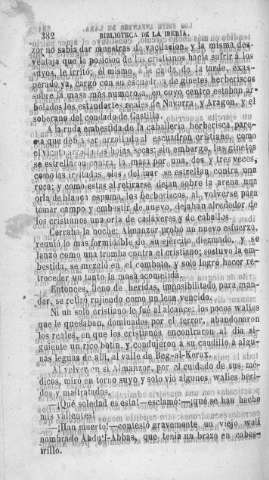 382 BIBLIOTECA DE LA IBERIA.
zor no sabia dar muestras de vacilacion, y la misma des-
ventaja que la posicion de los cristianos hacia sufrir á los
suyos, le irritó; él mismo, á la caida de la tarde, exas-
perado ya, cargó con su escuadra de ginetes berberiscos
sobre la masa mas numerosa, en cuyo centro estaban ar-
bolados los estandartes reales de Navarra, y Aragon, y el
soberano del condado de Castilla.
A la ruda embestida de la caballería berberisca, pare-
cia que debia ser arrollado el escuadron cristiano, como
el viento arrolla las hojas secas; sin embargo, los ginetes
se estrellaron contra la masa por una, dos y tres veces,
como las irritadas olas del mar se estrellan contra una
roca; y como estas al retirarse dejan sobre la arena una
orla de blanca espuma, los berberiscos al volverse para
tomar campo y embestir de nuevo, dejaban alrededor de
los cristianos una orla de cadáveres y de caballos.
Cerraba la noche: Almanzor probó un nuevo esfuerzo,
reunió lo mas formidable de su ejército, diezmado, y se
lanzó como una tromba contra el cristiano; sostuvo la em-
bestida, se mezcló en el combate, y solo logró hacer re-
troceder un tanto la masa acometida.
Entonces, lleno de heridas, imposibilitado para man-
dar, se retiró rujiendo como un leon vencido.
Ni un solo cristiano le fué al alcance: los pocos walíes
que le quedaban, dominados por el terror, abandonaron
los reales, en que los cristianos encontraron al dia si-
guiente un rico botin, y condujeron á su caudillo á algu-
nas leguas de allí, al valle de Beg-al-Korax.
Al volver en sí Almanzor, por el cuidado de sus mé-
dicos, miró en torno suyo y solo vió algunos walíes heri-
dos y maltratados.
—¡Qué soledad es esta!—esclamó:—¿qué se han hecho
mis valientes?
—¡Han muerto!—contestó gravemente un viejo walí
nombrado Abdu'l-Abbas, que tenia un brazo en cabes-
trillo.